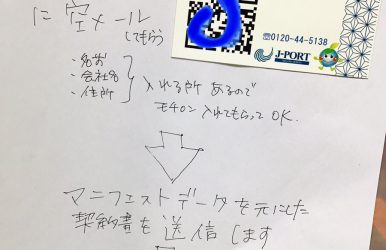 に 空メール
してもらう
☎0120-44-5138
J-PORT
・名前
・会社名
・住所
入れる所 あるので
モチロン 入れてもらって OK.
マニフェストデータ を元にした
契約書を送信します